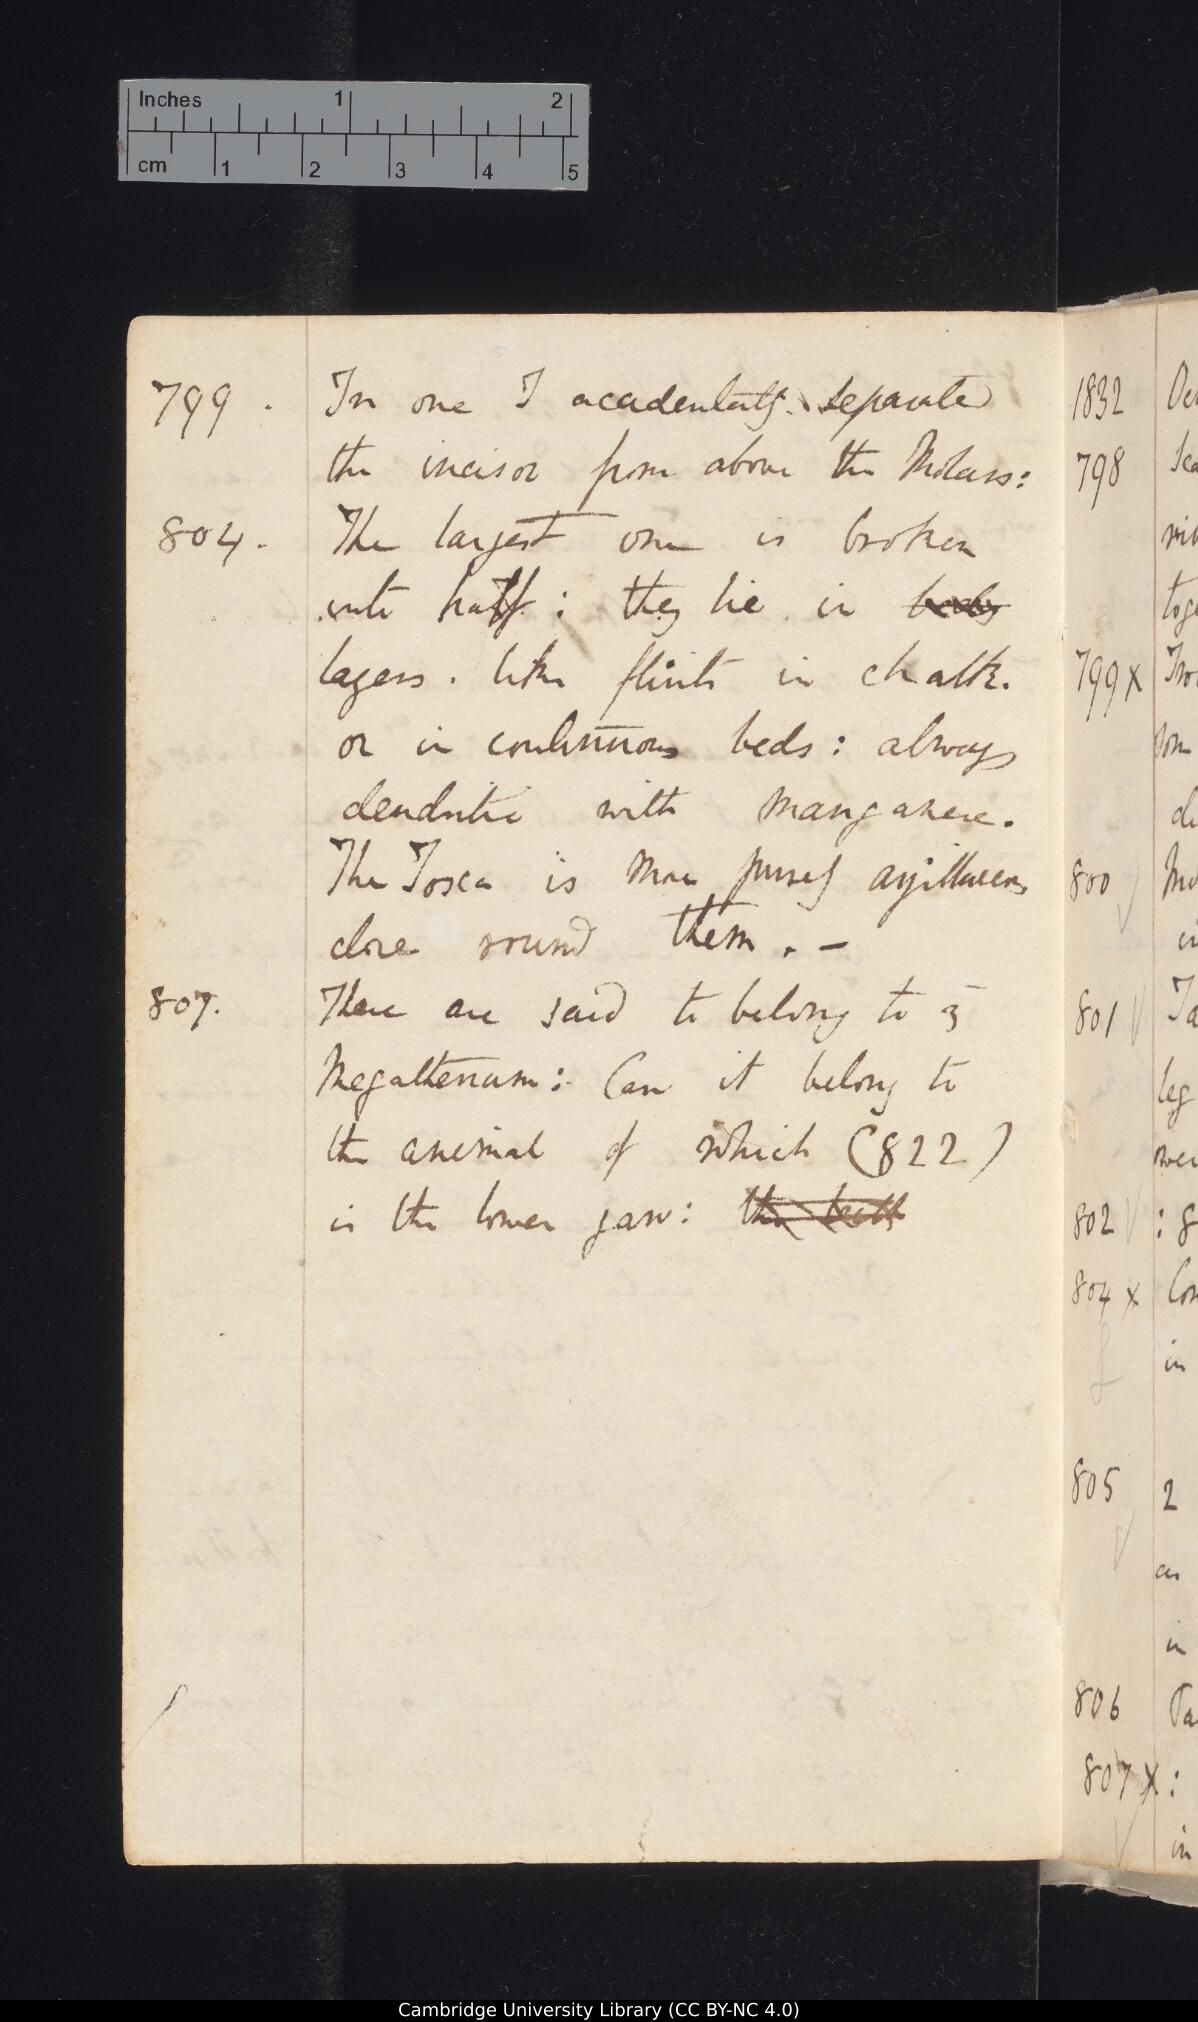 Inches 1 2
cm 1 2 3 4 5
799. In one I accidentally separated
the incisor from above the Molars:
804. The largest one is broken
into half: they lie in beds
layers. like flints in chalk.
or in continuous beds: always
dendritic with manganese.
The Tosca is more purely argillaceous
close round them. —
807. These are said to belong to
Megatherium: Can it belong to
the animal of which (822)
is the lower jaw: the teeth
1832
798
799 x
800
801
leg
802 : 8
804 x
in
805 2
as
in
806
807 x :
in
Cambridge University Library (CC BY-NC 4.0)